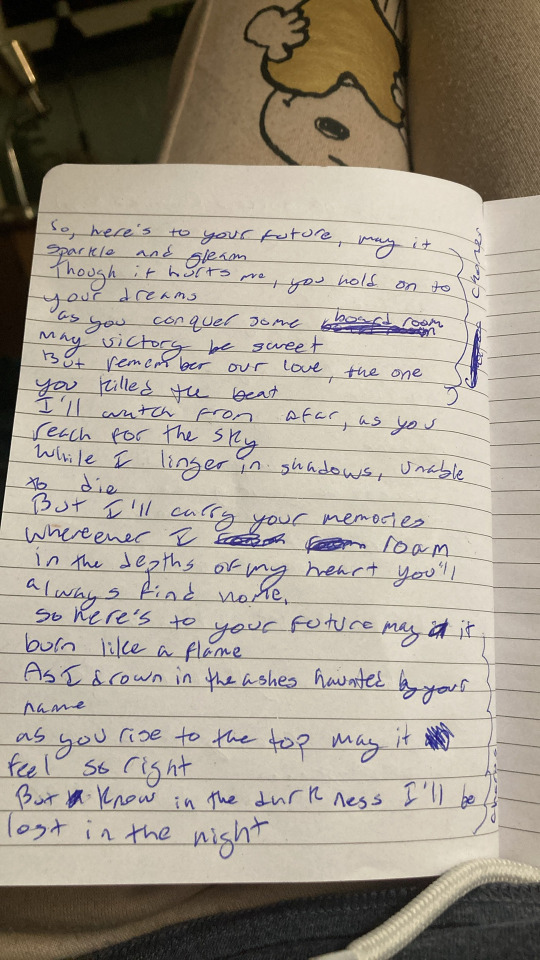 So, here's to your future, may it
sparkle and gleam
Though it hurts me, you hold on to
your dreams
as you conquer some board room
may victory be sweet
But remember our love, the one
you killed the beat
I'll watch from afar, as you
reach for the sky
While I linger in shadows, unable
to die
But I'll carry your memories
whereever I roam
in the depths of my heart you'll
always find home,
so here's to your future may it
burn like a flame
As I drown in the ashes haunted by your
name
as you rise to the top may it
feel so right
But know in the darkness I'll be
lost in the night
chorus